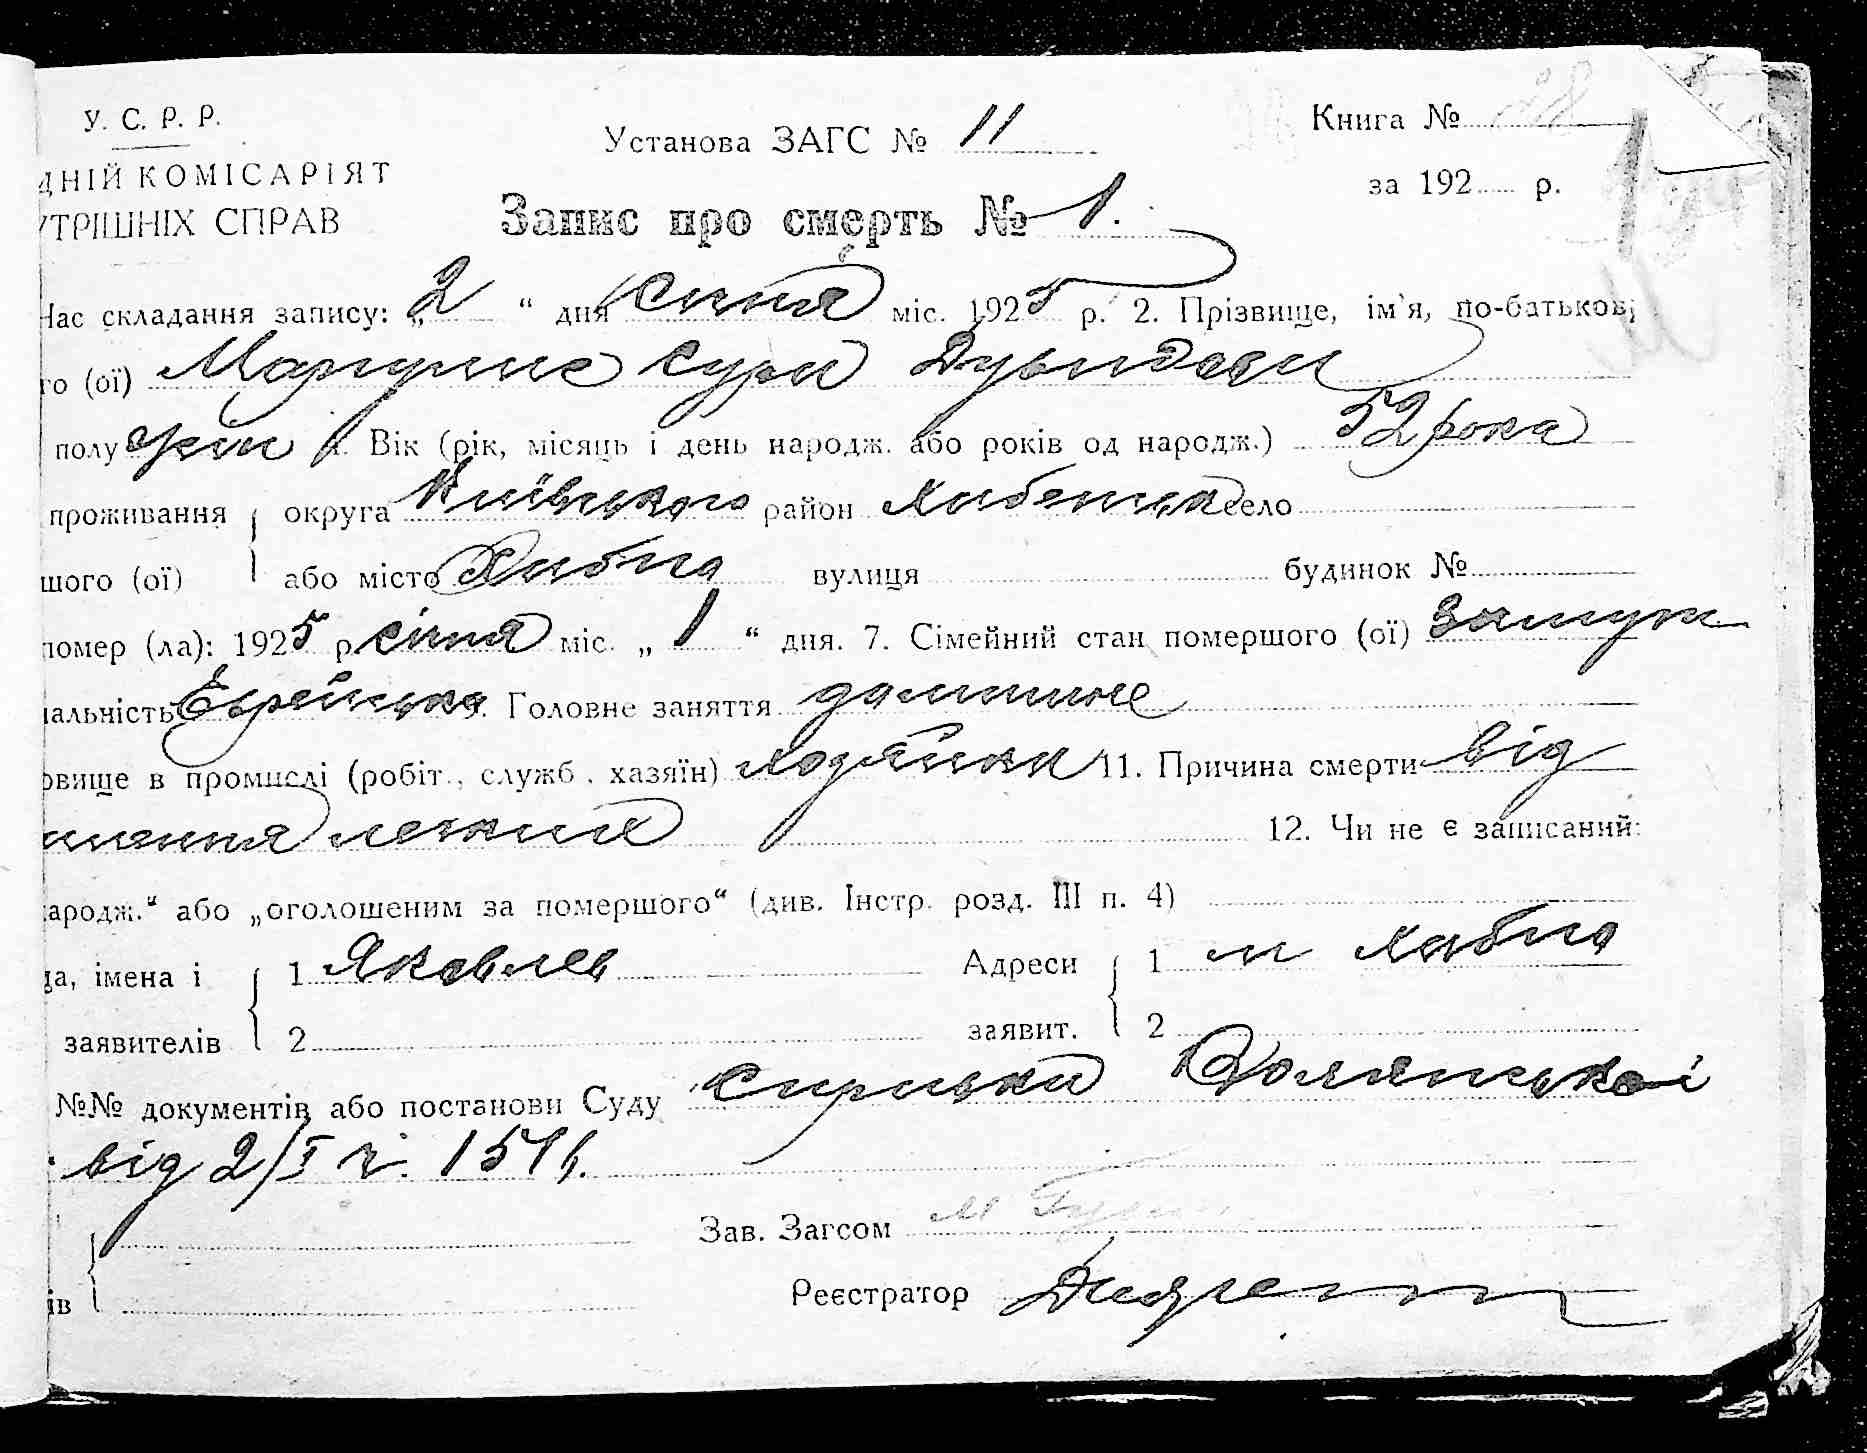 У. С. Р. Р.
ДНІЙ КОМІСАРІЯТ
УТРІШНІХ СПРАВ
Установа ЗАГС № 11
Книга №
за 192 р.
Запис про смерть № 1.
Час складання запису: „2“ дня Січня міс. 1925 р. 2. Прізвище, ім'я, по-батькові
го (ої) Маргулис Сури
полу жін 4. Вік (рік, місяць і день народж. або років од народж.) 52 рока
проживання округа Київського район Хибенська село
шого (ої) або місто Хибна вулиця будинок №
помер (ла): 1925 р. січня міс. „1“ дня. 7. Сімейний стан помершого (ої) замуж
альність Єврейська 9. Головне заняття домашнє
овище в промислі (робіт., служб., хазяїн) ходяйка 11. Причина смерти від
легких 12. Чи не є записаний:
ародж.“ або „оголошеним за помершого“ (див. Інстр. розд. III п. 4)
да, імена і 1 Яковлев Адреси 1 м Хибна
заявителів 2 заявит. 2
№№ документів або постанови Суду
від 2/I
Зав. Загсом М
ів Реєстратор